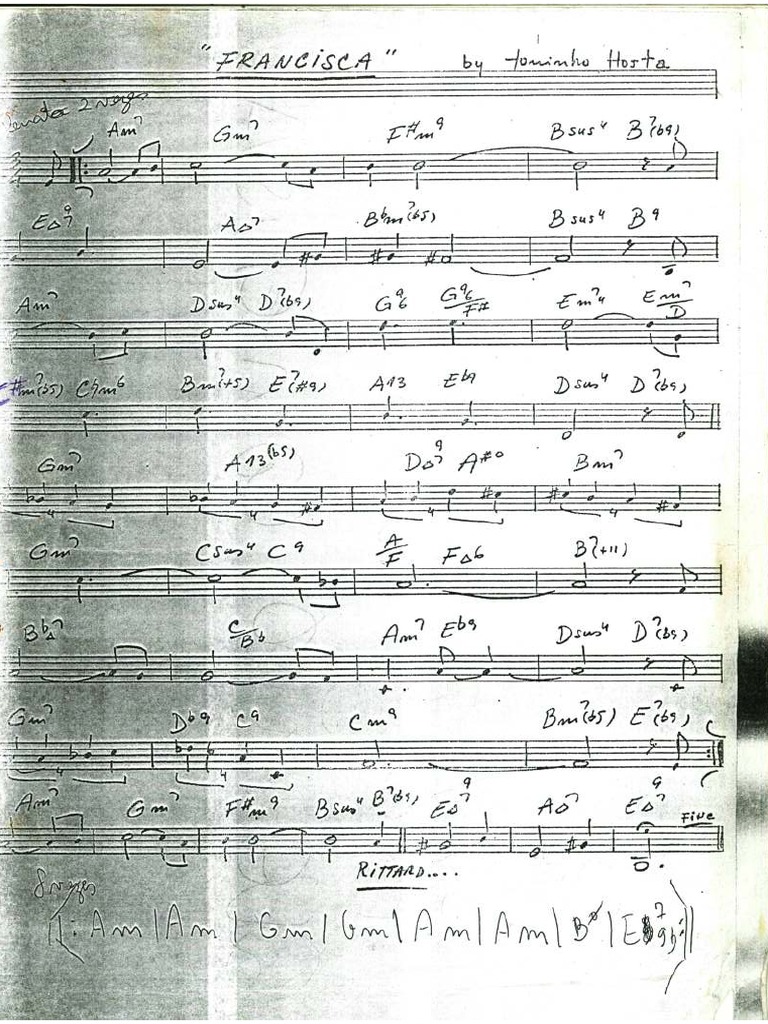 "FRANCISCA" by toninho Horta
2 vezes
Am7 Gm7 F#m9 Bsus4 B7(b9)
E△7 9 A△7 Bbm7(b5) Bsus4 B9
Am7 Dsus4 D7(b9) G 9/6 G 9/6 / F# Em7 Em7/D
#m7(b5) Bm7(+5) E7(#9) A13 Eb9 Dsus4 D7(b9)
Gm7 A13(b5) D△7 9 A#o Bm7
4 4 4 4
Gm7 Csus4 C9 A/F F△6 B7(+11)
Bb△7 C/Bb Am7 Eb9 Dsus4 D7(b9)
Gm7 Db9 C9 Cm9 Bm7(b5) E7(b9)
4 4
Am7 Gm7 F#m7 9 Bsus4 B7(b9) E△7 9 A△7 E△7 9 Fine
RITTARD....
8 vezes
(|: Am | Am | Gm | Gm | Am | Am | Bø | E7 9b :|)